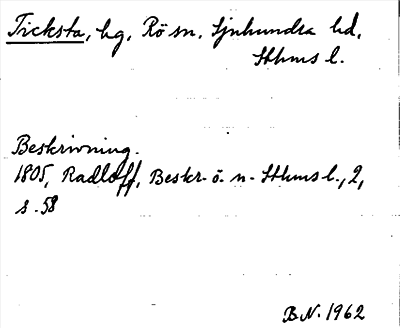 Ticksta, hg, Rö sn, Sjuhundra hd,
Sthms l.
Beskrivning.
1805, Radloff, Beskr. ö. n. Sthms l., 2,
s. 58
B.N. 1962